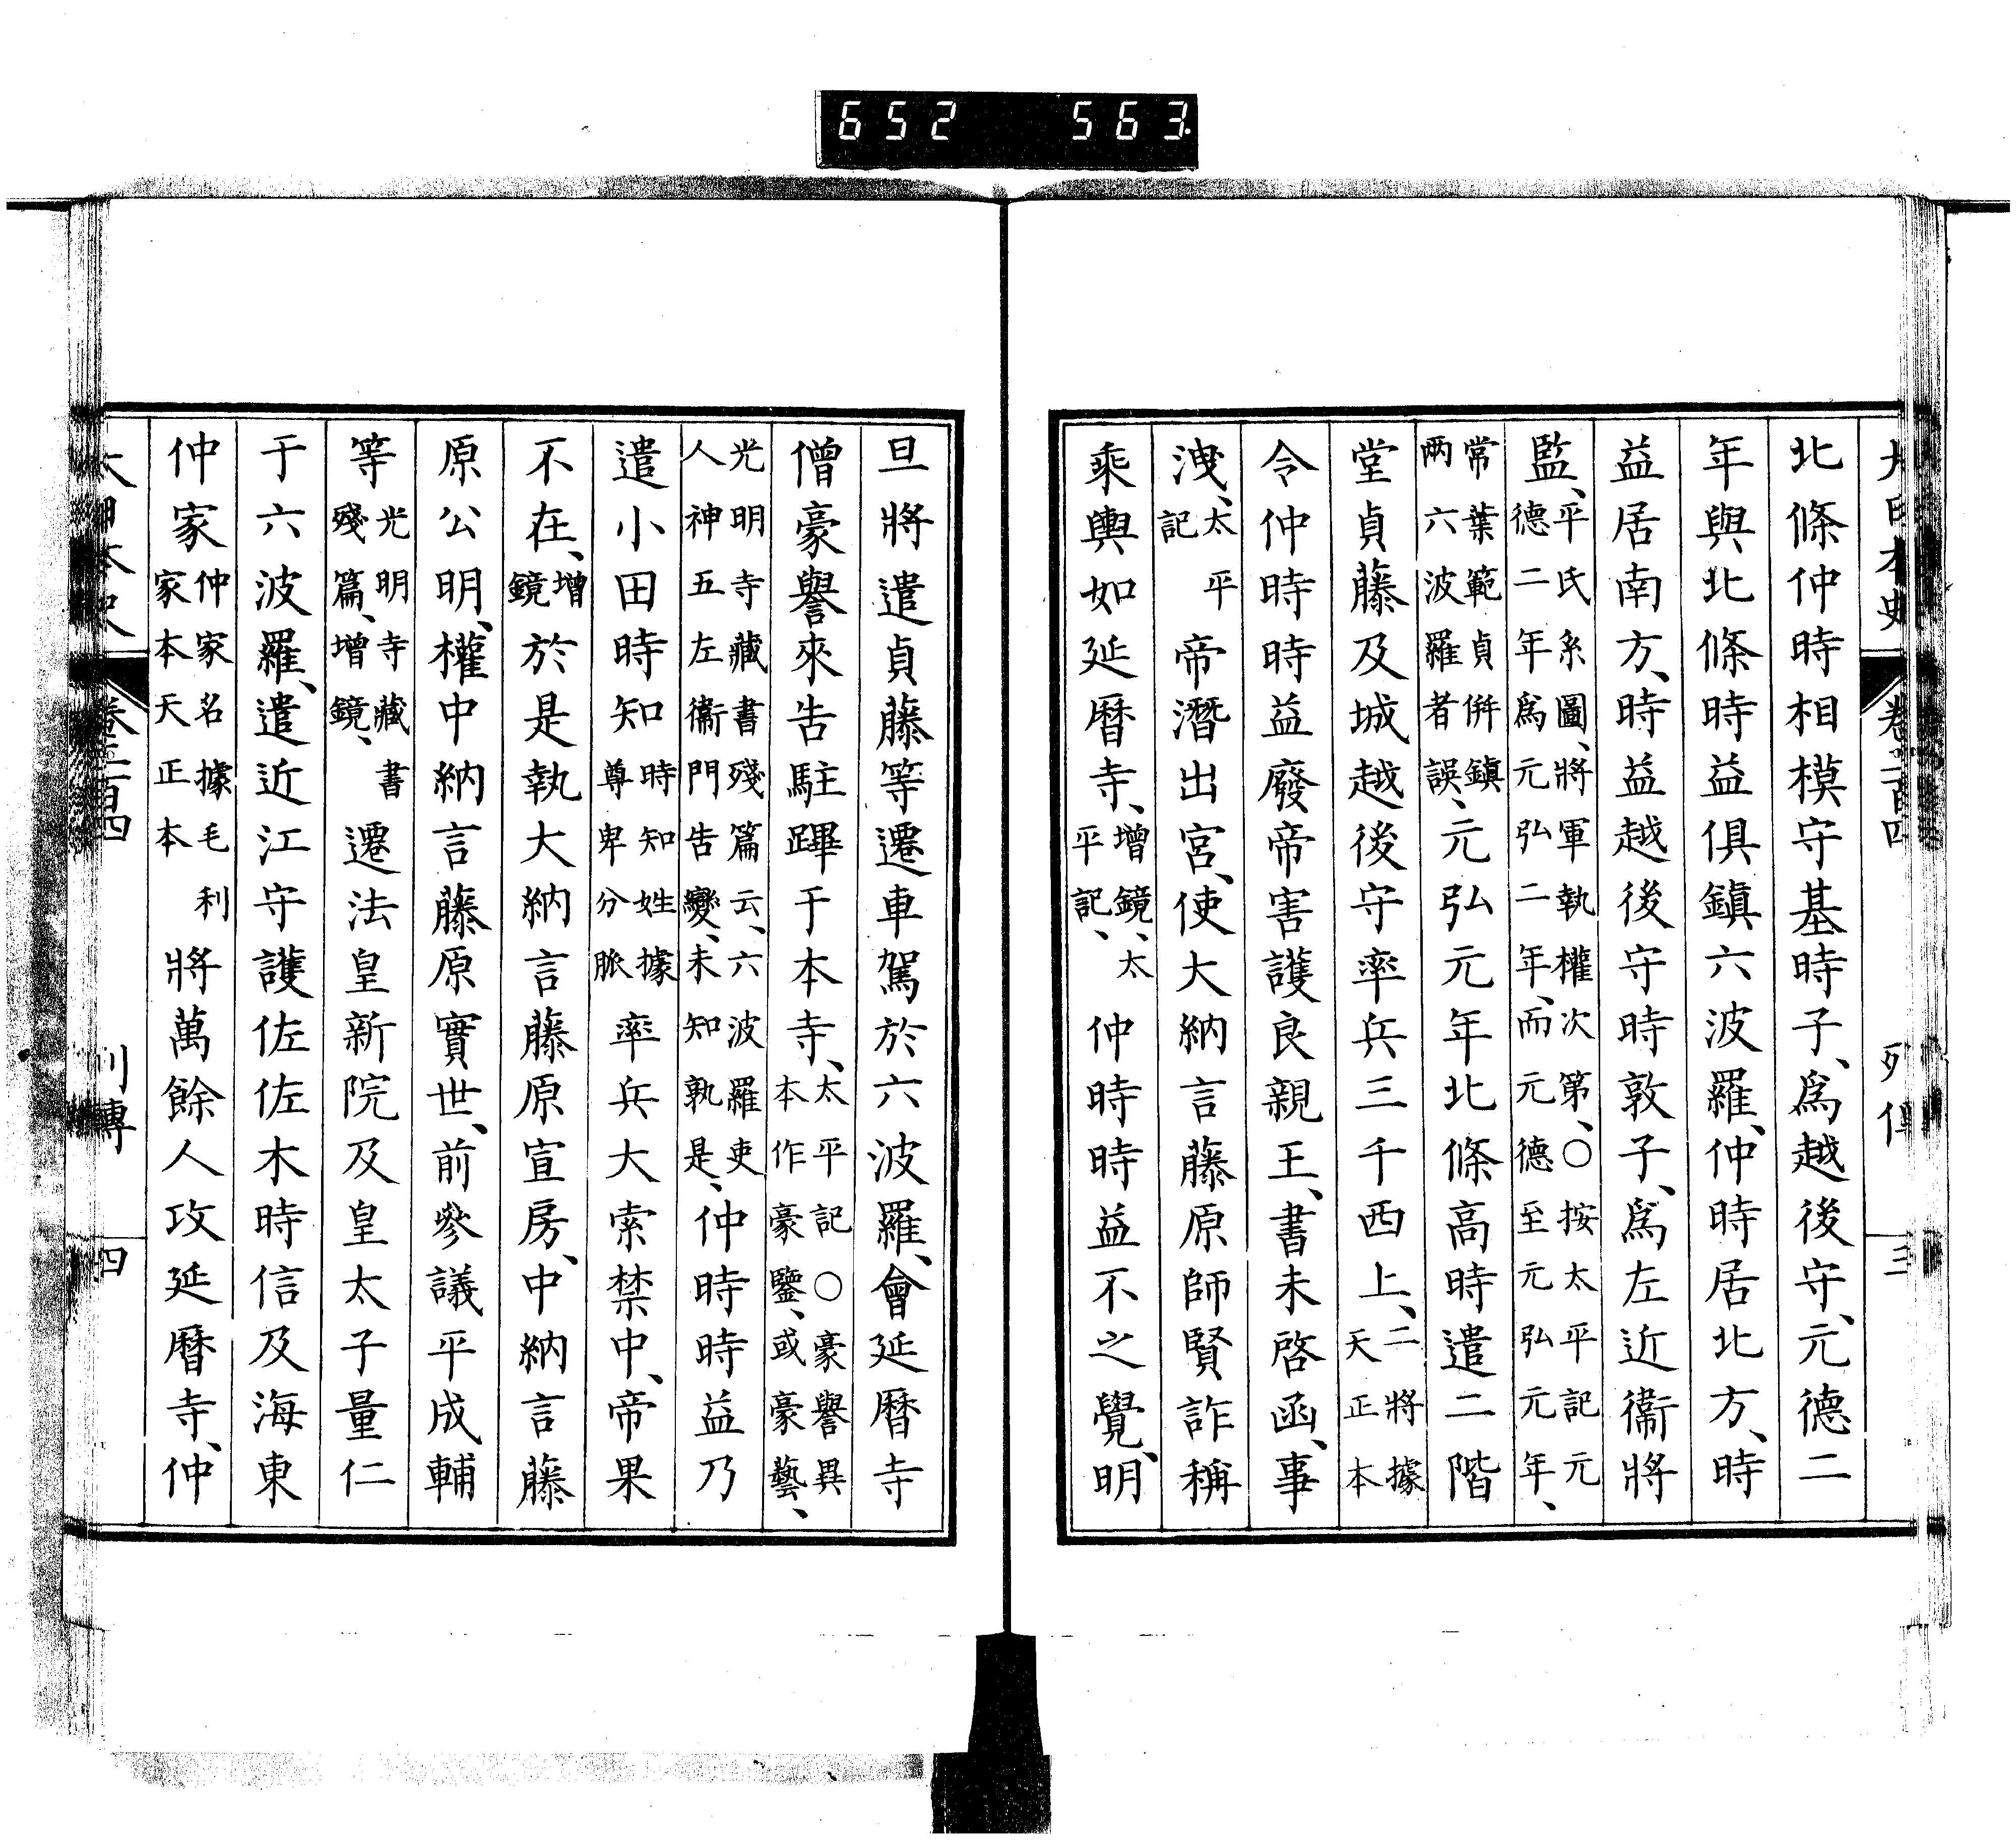 652 563
大日本史 卷二百四 列傳 三
北條仲時相模守基時子、爲越後守、元德二
年與北條時益俱鎮六波羅、仲時居北方、時
益居南方、時益越後守時敦子、爲左近衞將
監、平氏系圖、將軍執權次第、○按太平記元德二年爲元弘二年、而元德至元弘元年、
常葉範貞併鎮兩六波羅者誤、元弘元年北條高時遣二階
堂貞藤及城越後守率兵三千西上、二將據天正本
令仲時時益廢帝害護良親王、書未啓函、事
洩、太平記帝潛出宮、使大納言藤原師賢詐稱
乘輿如延曆寺、增鏡、太平記、仲時時益不之覺、明
旦將遣貞藤等遷車駕於六波羅、會延曆寺
僧豪譽來告駐蹕于本寺、太平記○豪譽異本作豪鑒、或豪藝、
光明寺藏書殘篇云、六波羅吏人神五左衞門告變、未知孰是、仲時時益乃
遣小田時知時知姓據尊卑分脈率兵大索禁中、帝果
不在、增鏡於是執大納言藤原宣房、中納言藤
原公明、權中納言藤原實世、前參議平成輔
等光明寺藏書殘篇、增鏡、遷法皇新院及皇太子量仁
于六波羅、遣近江守護佐佐木時信及海東
仲家仲家名據毛利家本天正本將萬餘人攻延曆寺、仲
大日本史 卷二百四 列傳 四